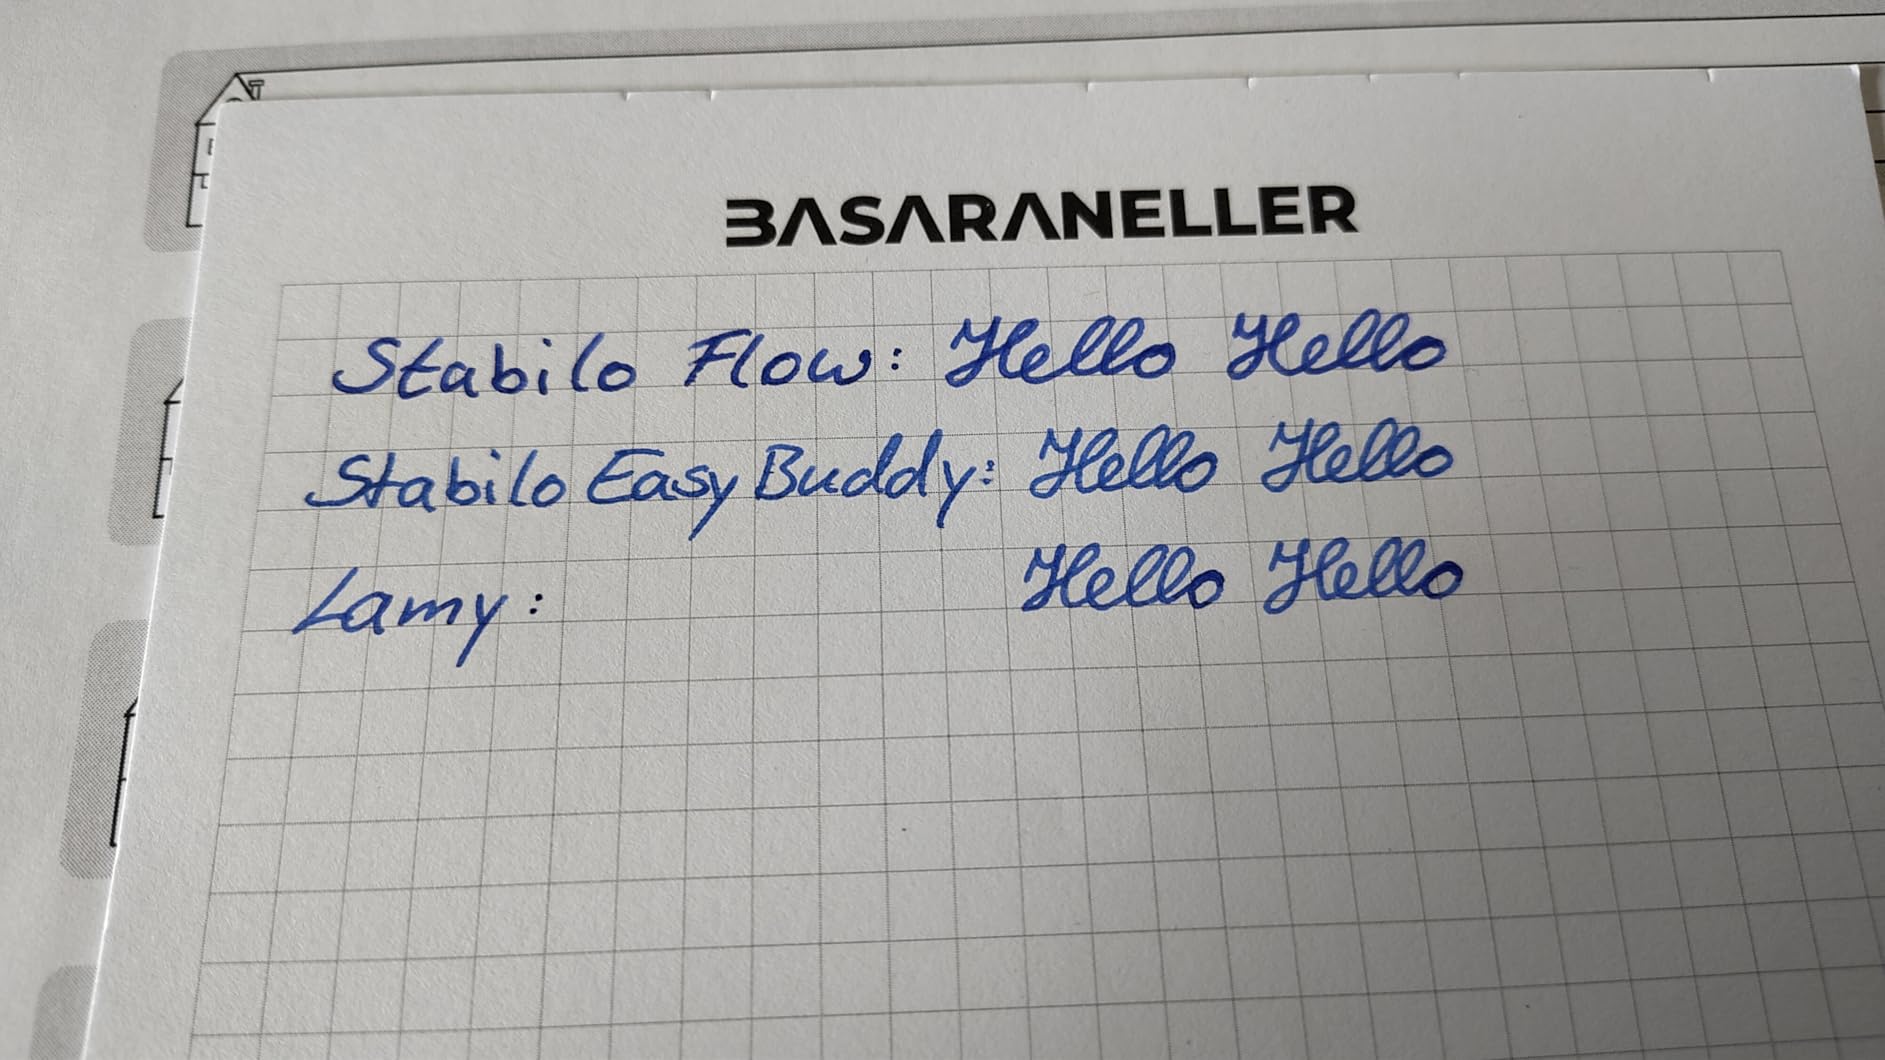 BASARANELLER
Stabilo Flow: Hello Hello
Stabilo Easy Buddy: Hello Hello
Lamy: Hello Hello